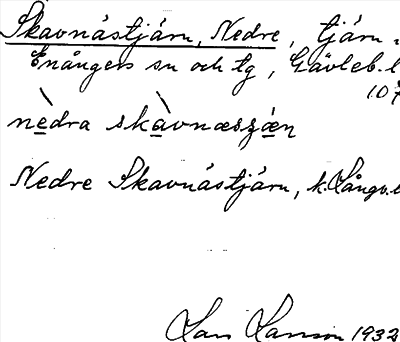 Skavnåstjärn, Nedre, tjärn
Enångers sn och tg, Gävleb. l
107
nedra skavnæszæn
Nedre Skavnåstjärn, k. Långv.
Lars Larsson 1932